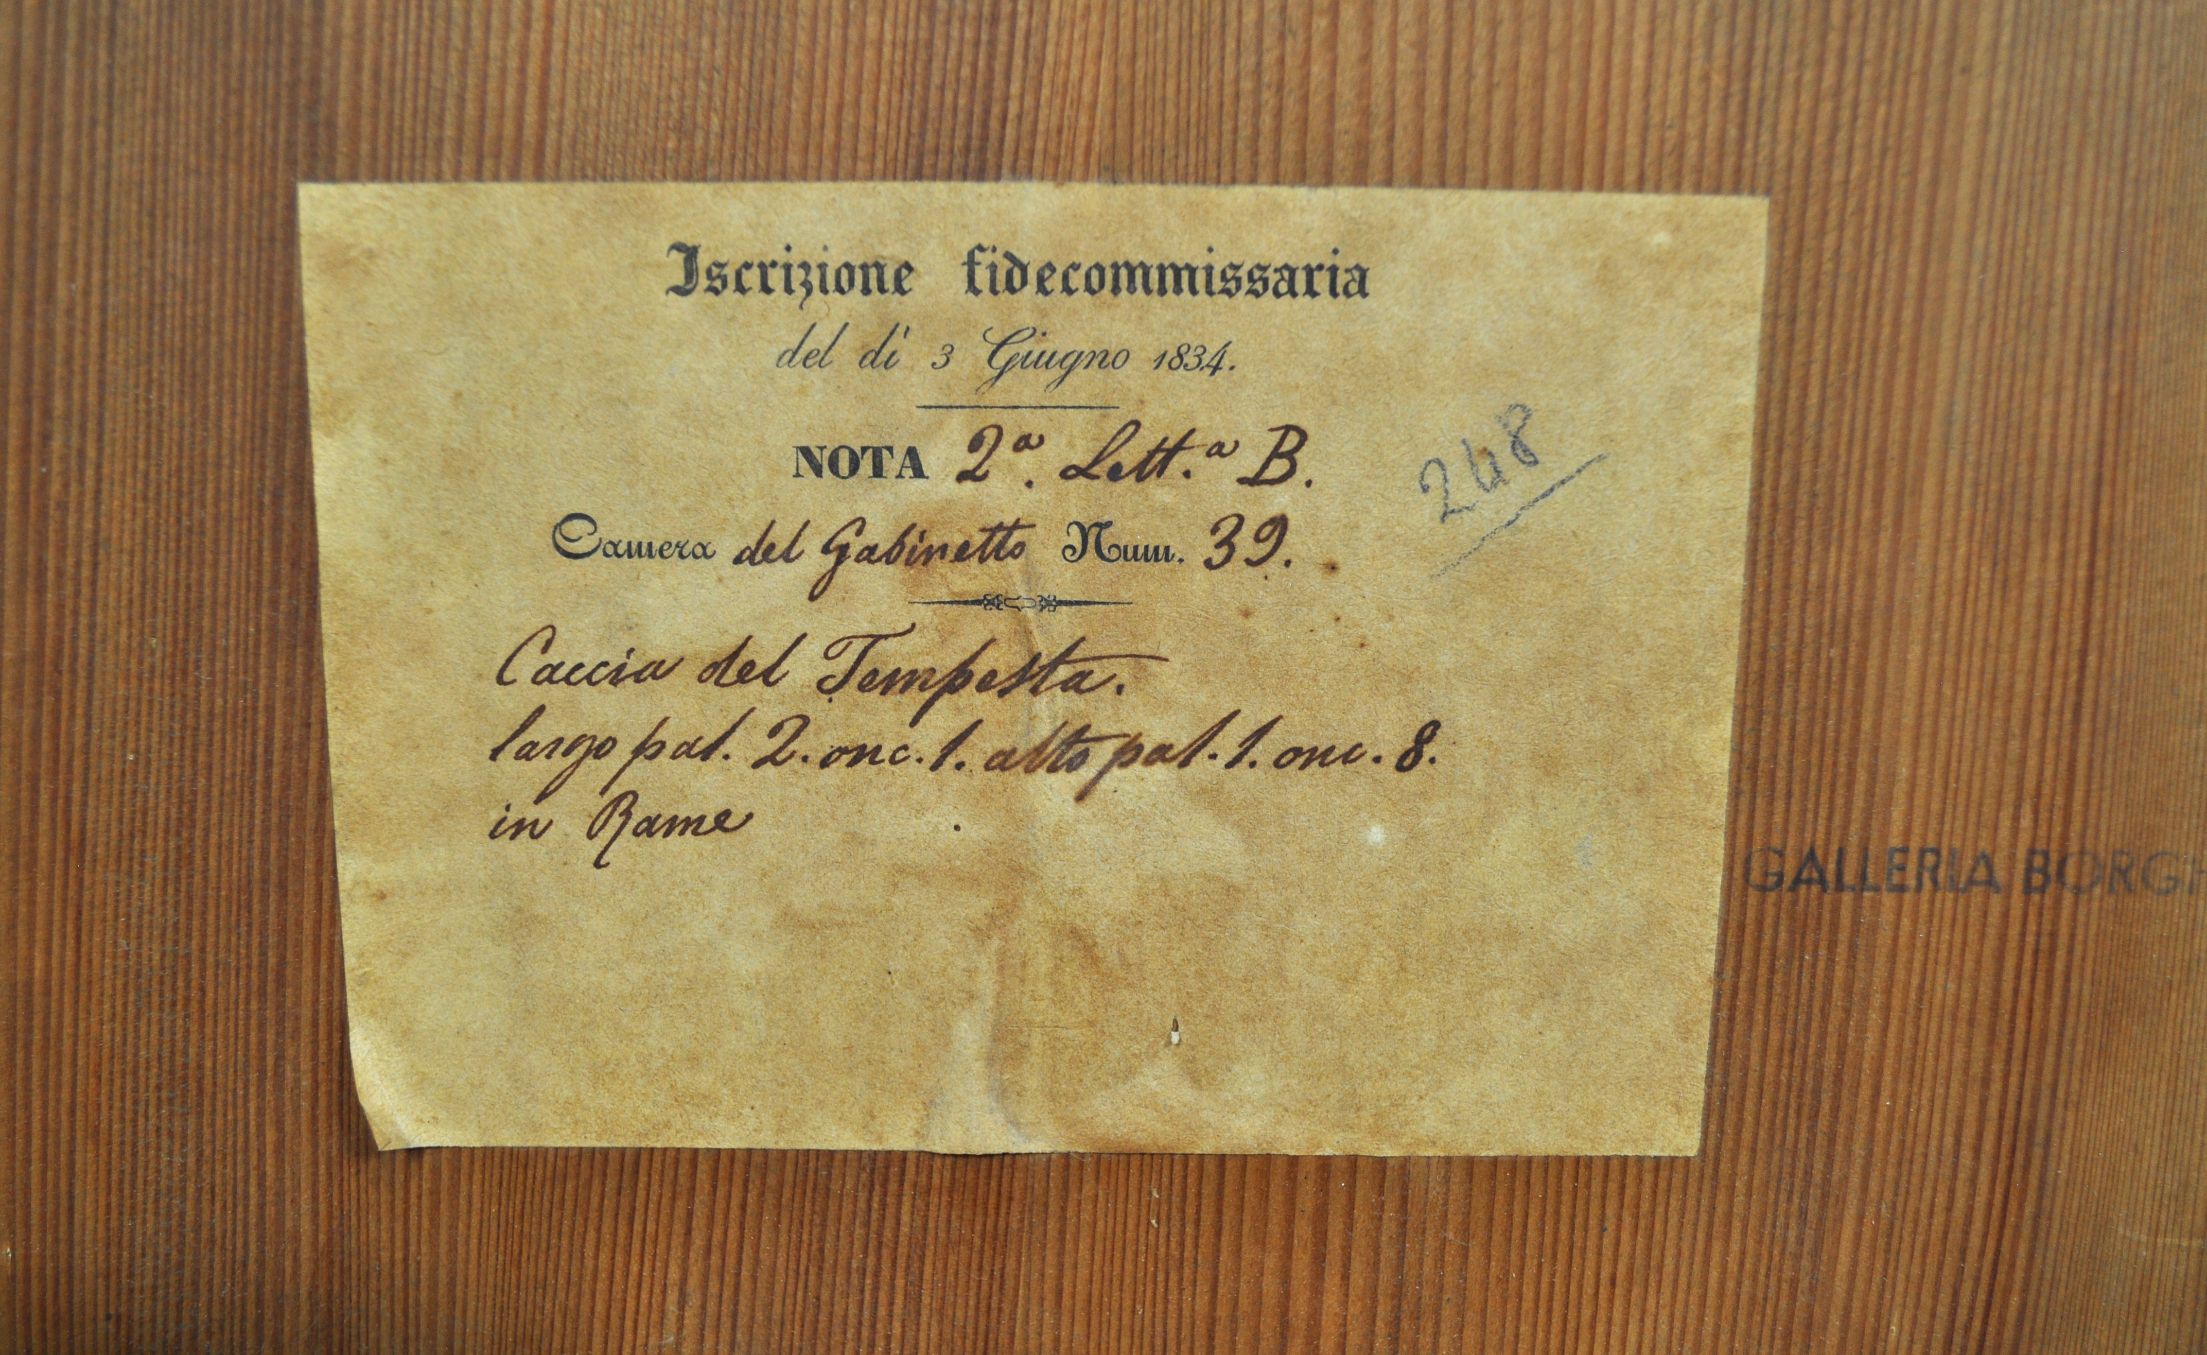 Iscrizione fidecommissaria
del dì 3 Giugno 1834.
NOTA 2ª. Lett.ª B.
248
Camera del Gabinetto Num. 39.
Caccia del Tempesta.
largo pal. 2. onc. 1. alto pal. 1. onc. 8.
in Rame
GALLERIA BORGH